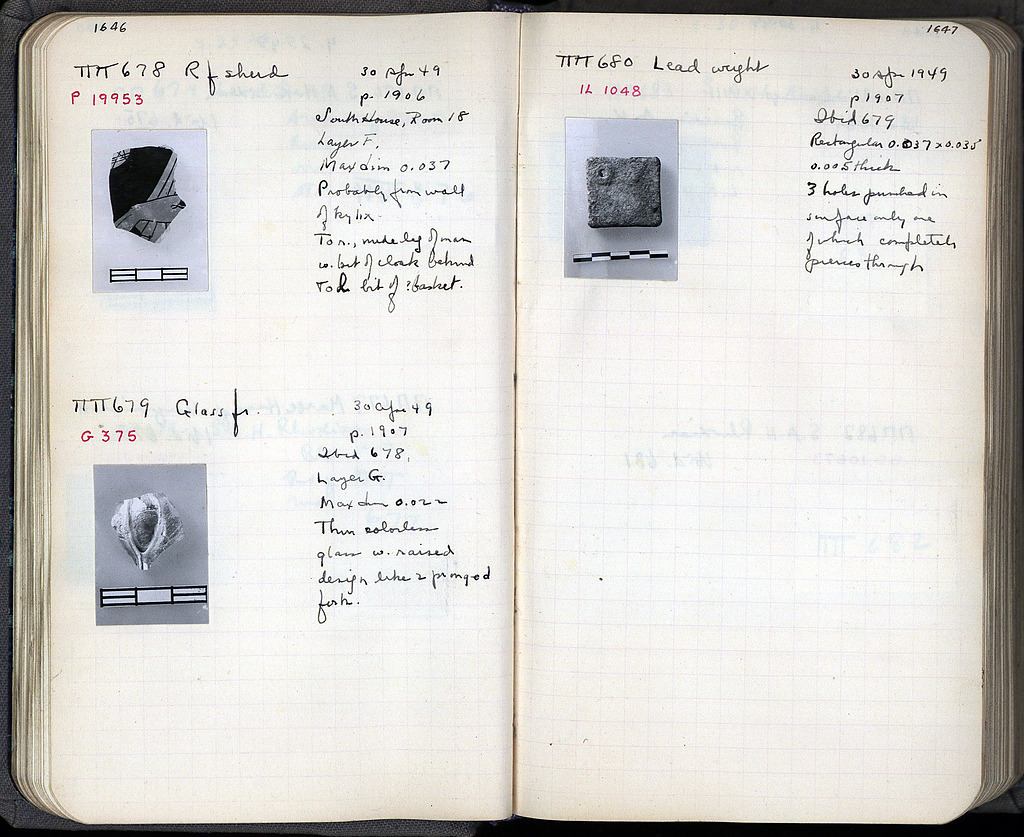 1646
ΠΠ 678 Rf sherd
30 Apr 49
P 19953
p. 1906
South House, Room 18
Layer F.
Max dim 0.037
Probably from wall
of kylix.
To r., nude leg of man
w. bit of cloak behind
To l. bit of ? basket.
ΠΠ 679 Glass fr.
30 Apr 49
G 375
p. 1907
Ibid 678,
Layer G.
Max dim 0.022
Thin colorless
glass w. raised
design like 2 pronged
fork.
1647
ΠΠ 680 Lead weight
30 Apr 1949
IL 1048
p 1907
Ibid 679
Rectangular 0.037 x 0.035
0.005 thick
3 holes punched in
surface only one
of which completely
pierces through